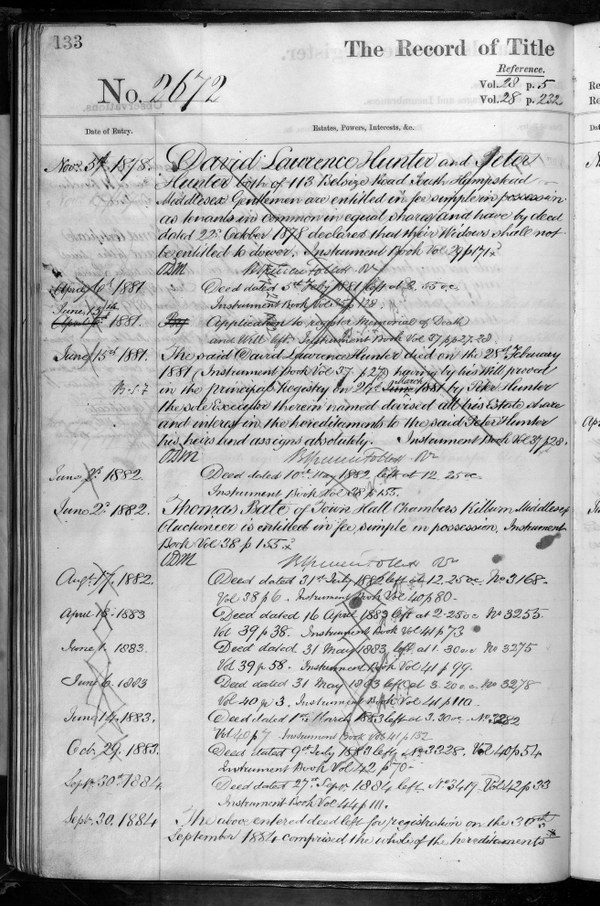 133
The Record of Title
Reference.
No. 2672
Vol. 23 p. 5
Vol. 28 p. 232
Date of Entry.
Estates, Powers, Interests, &c.
Novr. 5th 1878. David Lawrence Hunter and Peter
Hunter both of 113 Belsize Road South Hampstead
Middlesex Gentlemen are entitled in fee simple in possession
as tenants in common in equal shares and have by deed
dated 22d October 1878 declared that their Widows shall not
be entitled to dower. Instrument Book Vol 29 p 171
April 6th 1881 Deed dated 5th July 1881 left at 2.55 oc.
Instrument Book Vol 37 p 128
June 15th
April 6th 1881. Application to register Memorial of Death
and Will left. Instrument Book Vol 37 pp 27.28
June 15th 1881. The said David Lawrence Hunter died on the 28th February
1881 (Instrument Book Vol 37. p 27) having by his Will proved
in the principal Registry on 21st March 1881 by Peter Hunter
the sole Executor therein named devised all his Estate share
and interest in the hereditaments to the said Peter Hunter
his heirs and assigns absolutely. Instrument Book Vol 37 p 28.
June 2d 1882. Deed dated 10th May 1882 left at 12.25 oc
Instrument Book Vol 38 p 155.
June 2d 1882. Thomas Bate of Town Hall Chambers Kilburn Middlesex
Auctioneer is entitled in fee simple in possession, Instrument
Book Vol 38 p 155
Augt. 17. 1882. Deed dated 31st July 1882 left at 12.25 oc No 3168.
Vol 38 p 6. Instrument Book Vol 40 p 80.
April 18. 1883 Deed dated 16 April 1883 left at 2.25 oc No 3255
Vol 39 p 38. Instrument Book Vol 41 p 73
June 1. 1883. Deed dated 31 May 1883, left at 1.30 oc No 3275
Vol 39 p 58. Instrument Book Vol 41 p 99.
June 6. 1883 Deed dated 31 May 1883 left at 3.20 oc No 3278
Vol 40 p 3. Instrument Book Vol 41 p 110.
June 14. 1883. Deed dated 1st March 1883 left at 3.30 oc No 3282
Vol 40 p 7 Instrument Book Vol 41 p 132
Oct. 29. 1883. Deed dated 9th July 1883 left No 3328. Vol 40 p 54
Instrument Book Vol 42 p 70
Septr. 30th 1884. Deed dated 27th Septr. 1884 left No 3417 Vol 42 p 33
Instrument Book Vol 44 p 111.
Septr. 30. 1884 The above entered deed left for registration on the 30th
September 1884 comprised the whole of the hereditaments